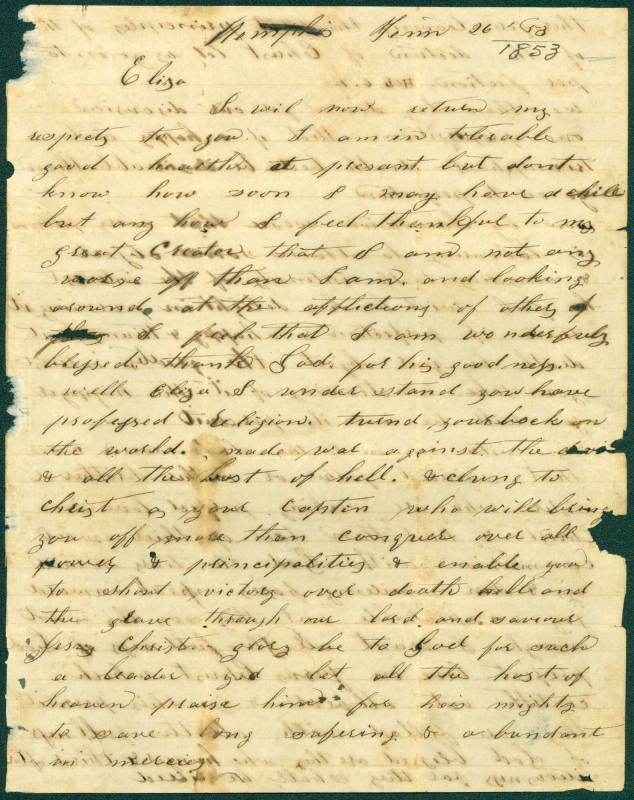 Memphis Tenn 26 53
1853
Eliza
I wil now return my
respects to you. I am in tolerable
good health at presant but dont
know how soon I may have a chill
but any how I feel thankful to my
great Creator that I am not any
worse of than I am. and looking
around at the afflictions of others
I feel that I am wonderfuly
blessed. thank God for his goodness.
well Eliza I under stand you have
professed religion. turnd your back on
the world. made war against the devil
& all the host of hell. & clung to
Christ as your Capten who will bring
you off more than conquer over all
power & principalities & enable you
to shout victory over death hell and
the grave through our lord and saviour
Jesus Christ glory be to God for such
a leader yes let all the host of
heaven praise him for hois mighty
to save long sufering & a bundant
in mercy